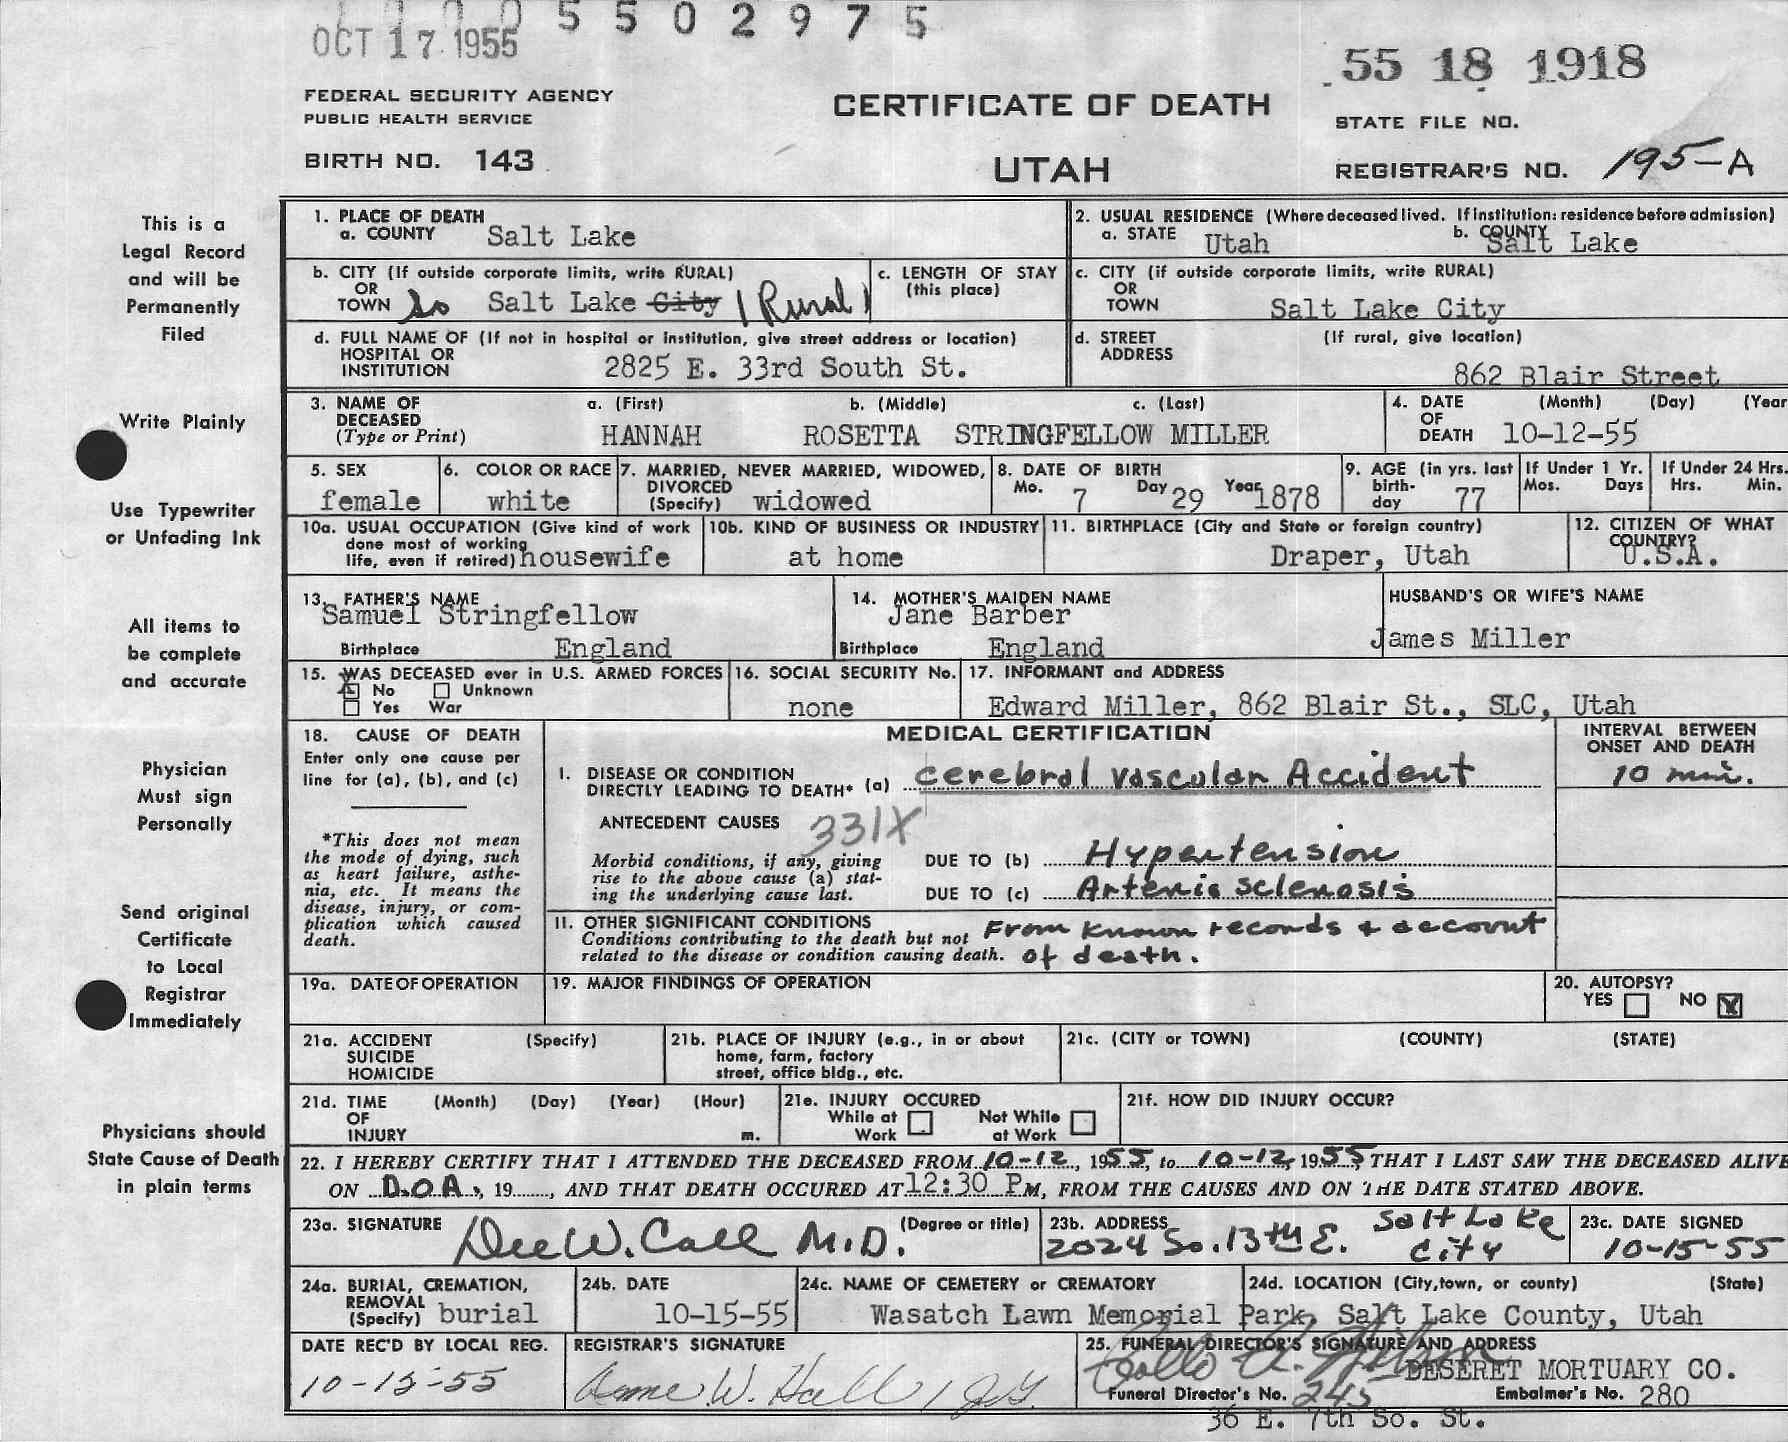 5502975
OCT 17 1955
55 18 1918
FEDERAL SECURITY AGENCY
PUBLIC HEALTH SERVICE
CERTIFICATE OF DEATH
STATE FILE NO.
BIRTH NO. 143
UTAH
REGISTRAR'S NO. 195-A
This is a
Legal Record
and will be
Permanently
Filed
Write Plainly
Use Typewriter
or Unfading Ink
All items to
be complete
and accurate
Physician
Must sign
Personally
Send original
Certificate
to Local
Registrar
Immediately
Physicians should
State Cause of Death
in plain terms
1. PLACE OF DEATH
a. COUNTY Salt Lake
2. USUAL RESIDENCE (Where deceased lived. If institution: residence before admission)
a. STATE Utah b. COUNTY Salt Lake
b. CITY (If outside corporate limits, write RURAL)
OR
TOWN So Salt Lake City (Rural)
c. LENGTH OF STAY
(this place)
c. CITY (if outside corporate limits, write RURAL)
OR
TOWN Salt Lake City
d. FULL NAME OF (If not in hospital or institution, give street address or location)
HOSPITAL OR
INSTITUTION 2825 E. 33rd South St.
d. STREET (If rural, give location)
ADDRESS 862 Blair Street
3. NAME OF a. (First) b. (Middle) c. (Last)
DECEASED
(Type or Print) HANNAH ROSETTA STRINGFELLOW MILLER
4. DATE (Month) (Day) (Year
OF
DEATH 10-12-55
5. SEX
female
6. COLOR OR RACE
white
7. MARRIED, NEVER MARRIED, WIDOWED,
DIVORCED
(Specify) widowed
8. DATE OF BIRTH
Mo. 7 Day 29 Year 1878
9. AGE (in yrs. last
birth-
day 77
If Under 1 Yr.
Mos. Days
If Under 24 Hrs.
Hrs. Min.
10a. USUAL OCCUPATION (Give kind of work
done most of working
life, even if retired) housewife
10b. KIND OF BUSINESS OR INDUSTRY
at home
11. BIRTHPLACE (City and State or foreign country)
Draper, Utah
12. CITIZEN OF WHAT
COUNTRY?
U.S.A.
13. FATHER'S NAME
Samuel Stringfellow
Birthplace England
14. MOTHER'S MAIDEN NAME
Jane Barber
Birthplace England
HUSBAND'S OR WIFE'S NAME
James Miller
15. WAS DECEASED ever in U.S. ARMED FORCES
X No Unknown
Yes War
16. SOCIAL SECURITY No.
none
17. INFORMANT and ADDRESS
Edward Miller, 862 Blair St., SLC, Utah
18. CAUSE OF DEATH
Enter only one cause per
line for (a), (b), and (c)
*This does not mean
the mode of dying, such
as heart failure, asthe-
nia, etc. It means the
disease, injury, or com-
plication which caused
death.
MEDICAL CERTIFICATION
INTERVAL BETWEEN
ONSET AND DEATH
I. DISEASE OR CONDITION
DIRECTLY LEADING TO DEATH* (a) Cerebral Vascular Accident
10 min.
ANTECEDENT CAUSES 331X
Morbid conditions, if any, giving
rise to the above cause (a) stat-
ing the underlying cause last.
DUE TO (b) Hypertension
DUE TO (c) Arterio sclerosis
II. OTHER SIGNIFICANT CONDITIONS
Conditions contributing to the death but not
related to the disease or condition causing death.
From known records & account
of death.
19a. DATE OF OPERATION
19. MAJOR FINDINGS OF OPERATION
20. AUTOPSY?
YES NO X
21a. ACCIDENT (Specify)
SUICIDE
HOMICIDE
21b. PLACE OF INJURY (e.g., in or about
home, farm, factory
street, office bldg., etc.
21c. (CITY or TOWN) (COUNTY) (STATE)
21d. TIME (Month) (Day) (Year) (Hour)
OF
INJURY m.
21e. INJURY OCCURED
While at Work Not While at Work
21f. HOW DID INJURY OCCUR?
22. I HEREBY CERTIFY THAT I ATTENDED THE DECEASED FROM 10-12, 1955, to 10-12, 1955, THAT I LAST SAW THE DECEASED ALIVE
ON D.O.A., 19......, AND THAT DEATH OCCURED AT 12:30 PM, FROM THE CAUSES AND ON THE DATE STATED ABOVE.
23a. SIGNATURE (Degree or title)
Dee W. Call M.D.
23b. ADDRESS
2024 So. 13th E. Salt Lake City
23c. DATE SIGNED
10-15-55
24a. BURIAL, CREMATION,
REMOVAL
(Specify) burial
24b. DATE
10-15-55
24c. NAME OF CEMETERY or CREMATORY
Wasatch Lawn Memorial Park,
24d. LOCATION (City, town, or county) (State)
Salt Lake County, Utah
DATE REC'D BY LOCAL REG.
10-15-55
REGISTRAR'S SIGNATURE
W. Hall
25. FUNERAL DIRECTOR'S SIGNATURE AND ADDRESS
DESERET MORTUARY CO.
Funeral Director's No. 245 Embalmer's No. 280
36 E. 7th So. St.